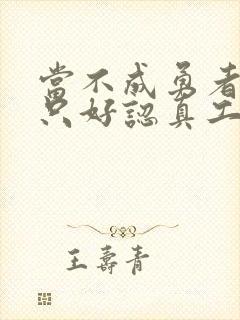 當不成勇者
只好認真工
王壽青